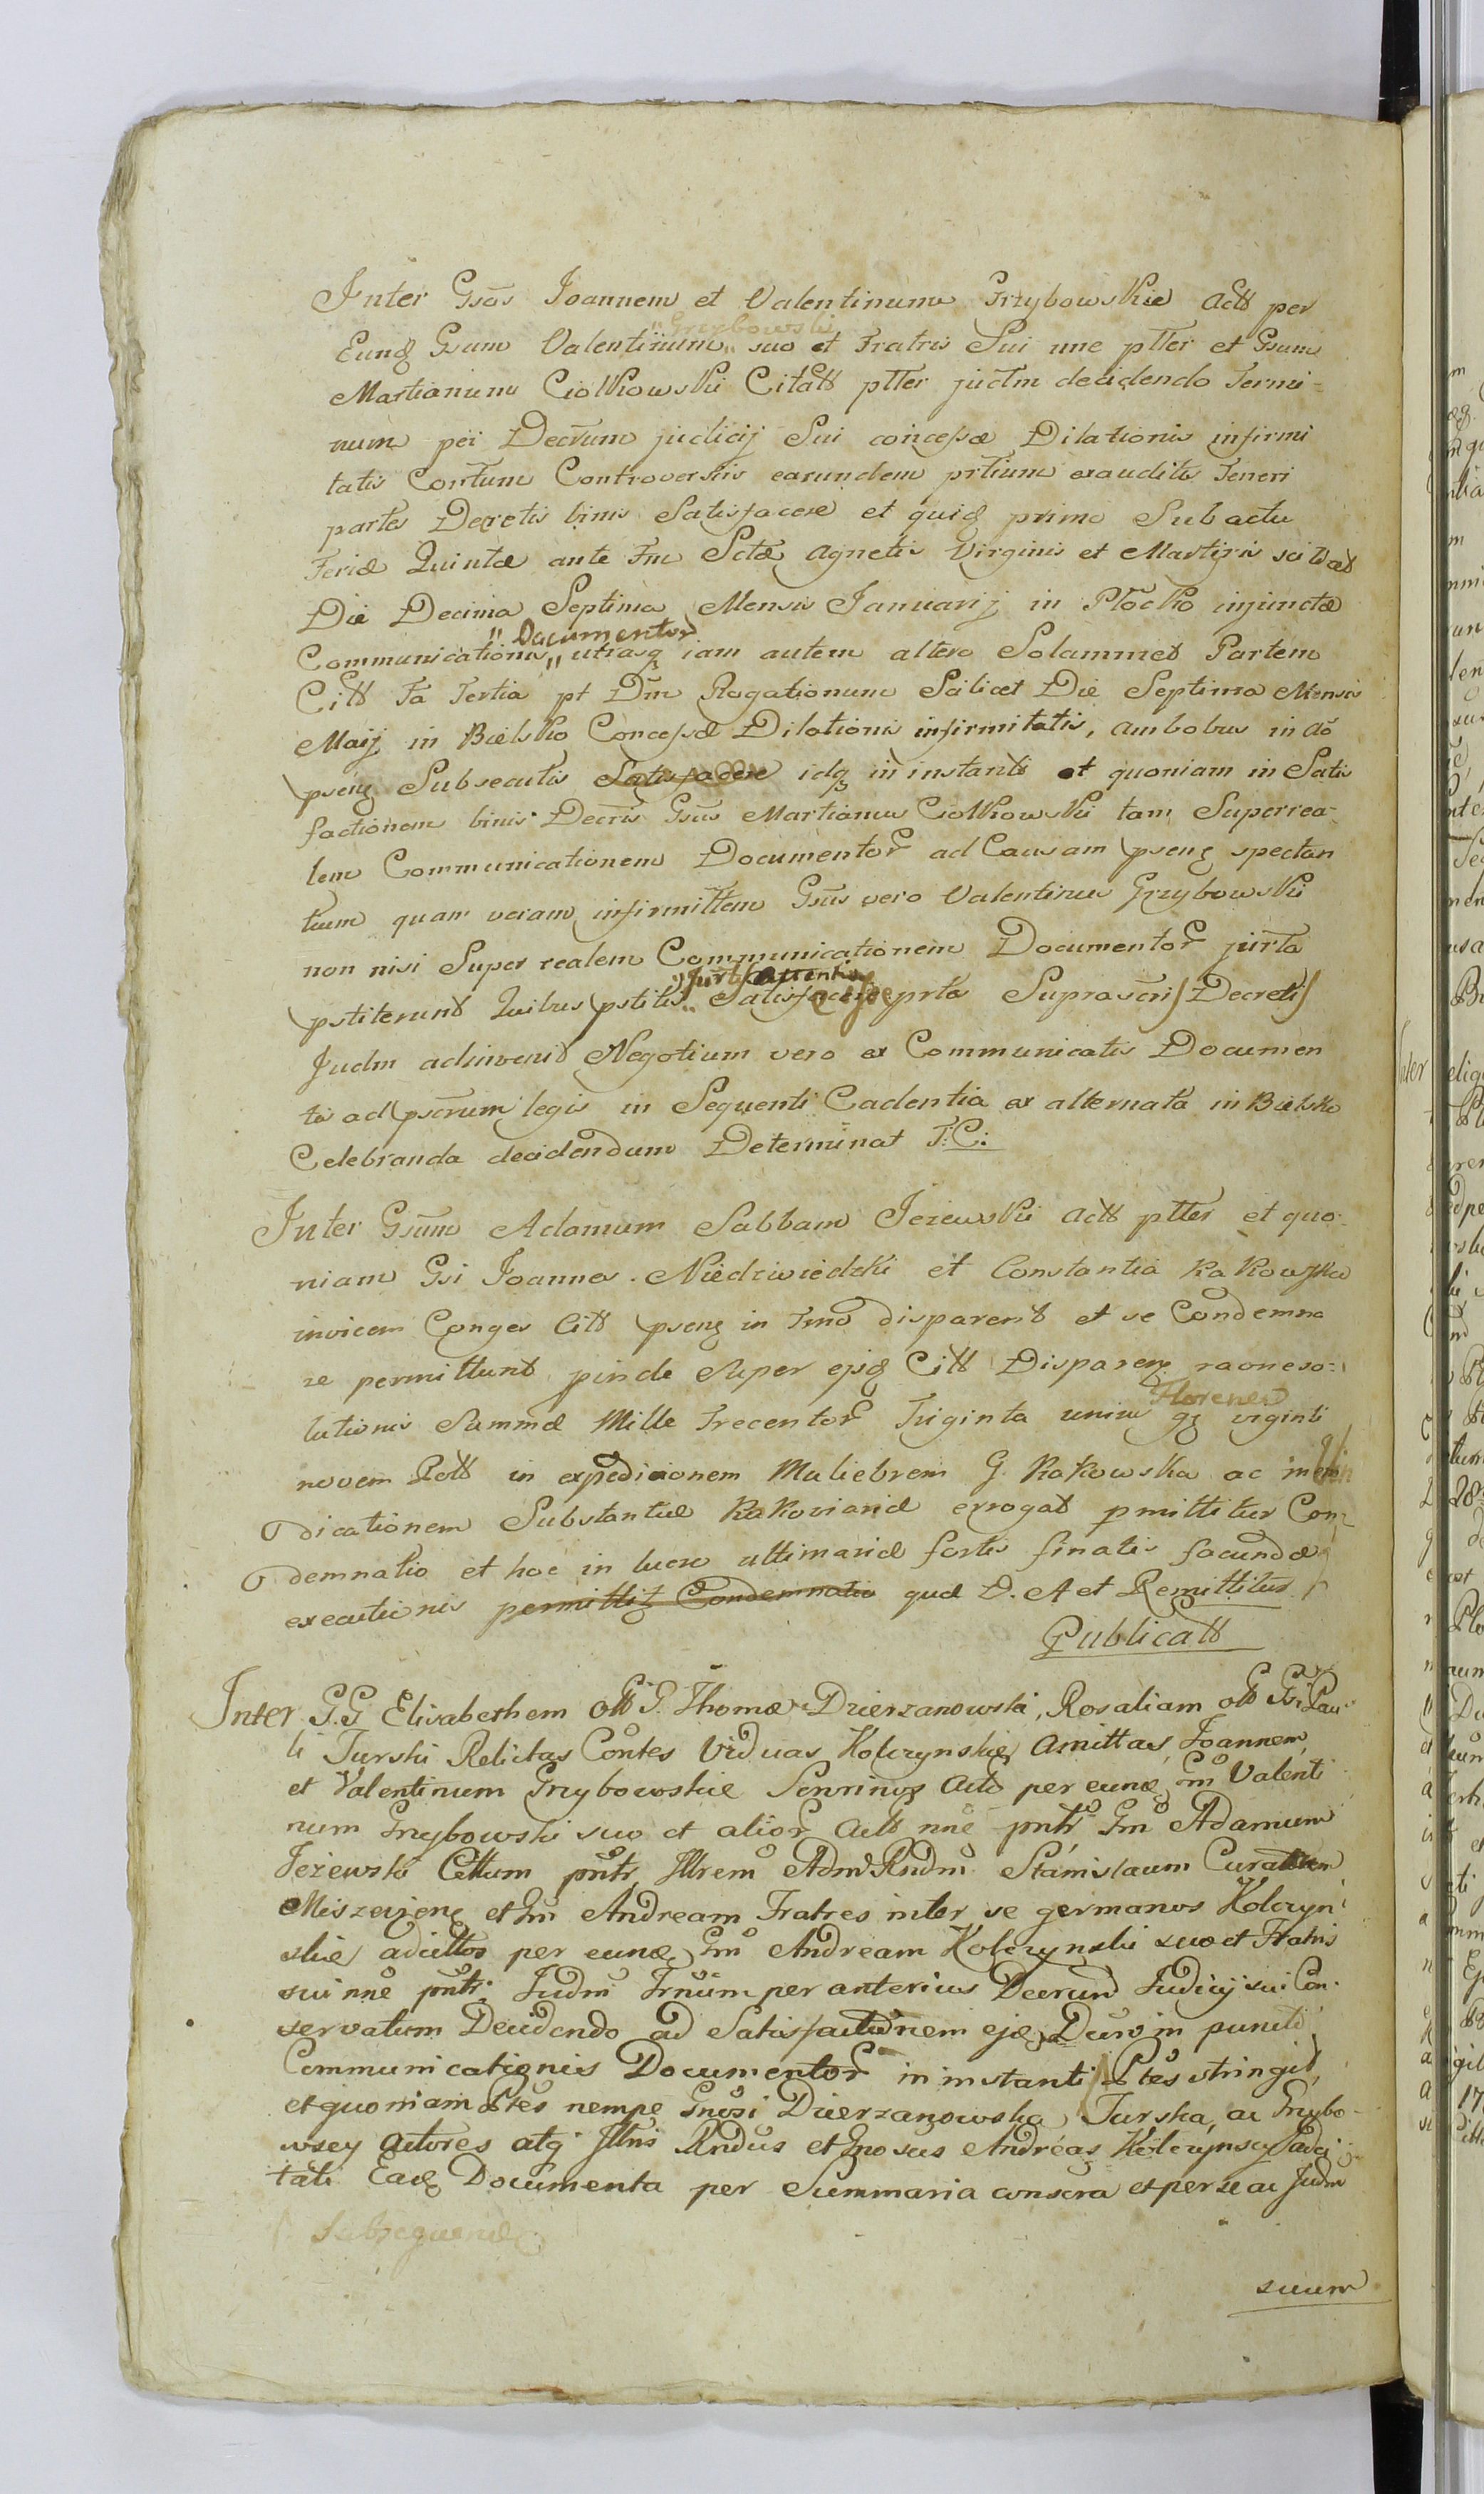 Inter Gsōs Joannem et Valentinum Grzybowskie Actt per
Eundq Gsum Valentinum "Grzybowski" suo et Fratris Sui nne ptter et Gsum
Martianum Ciołkowski Citatt ptter judm decidendo Termi-
num per Decrum judicij Sui concessæ Dilationis infirmi
tatis Contum Controversiis earundem prtium exauditis Teneri
partes Decretis binis Satisfacere et quidq primo Sub actu
Feriæ Quintæ ante Fm Sctæ Agnetis Virginis et Martyris
Die Decima Septima Mensis Januarij in Płocko injunctæ
Communicationis "Documentor" utrasq iam autem altero Solammet Partem
Citt Fa Tertia pt Dm Rogationum Scilicet Die Septima Mensis
Maij in Bielsko Concessæ Dilationis infirmitatis, ambobus in ao
psenq Subsecutis Satisfacere idq in instanti et quoniam in Satis
factionem binis Decris Gsūs Martianus Ciołkowski tam Superrea-
lem Communicationem Documentor ad Causam psenq spectan
tium quam veram infirmittem Gsūs vero Valentinus Grzybowski
non nisi Super realem Communicationem Documentor jurta
pstiterunt Quibus pstitis Satisfac prta Suprascri Decreti
Judm adinvenit Negotium vero ex Communicatis Documen
tis ad pscrum legis in Sequenti Cadentia ex alternata in Bielsko
Celebranda decidendum Determinat T. C:
Inter Gsum Adamum Sabbam Jeżewski Actt ptter et quo-
niam Gsi Joannes Niedzwiedzki et Constantia Kakowska
invicem Conges Citt psenq in Tmo disparent et se Condemna
re permittunt pinde Super ejsq Citt Disparenq raone so-
lutionis Summæ Mille Trecentor Triginta unius Florenor gq viginti
novem Pott in expedicionem Muliebrem G. Kakowska ac in
dicationem Substantiæ Kakovianæ errogat pmittitur Con-
demnatio et hoc in lucro ultimariæ sortis finalis facundæ
executionis permittiq Condemnatio quæ D. A et Remittitur
Publicatt
Inter G.G Elisabethem ott G. Thomæ Dzierzanowski, Rosaliam ott Gsi Pau-
li Turski Relictas Contes Viduas Kołczynskie, Amittas, Joannem,
et Valentinum Grzybowskie Actt per eunq Gm Valenti
num Grzybowski suo et alior Actt nne pntr Gm Adamum
Jeżewski Cittum pntr, Illrem Adm Rndm Stanislaum Curatum
Miszewjenq et Gm Andream Fratres inter se germanos Kołczyn
skie, adcittos per eunq Gm Andream Kołczynski suo et Fratris
sui nne pntr; Judm Trnūm per anterius Decrum Judicij sui Con-
servatum Decidendo ad Satisfactionem ejq Decrō in puncto
Communicationis Documentor in instanti Ptes stringit,
et quoniam Ptes nempe Gnosi Dzierzanowska, Turska, ac Grzybo-
wscy Actores atq Illris Rndus et Gnosus Andreas Kołczynscy adci-
tati Eadq Documenta per Summaria conscra et per se ac Judm
Subsequend
suum